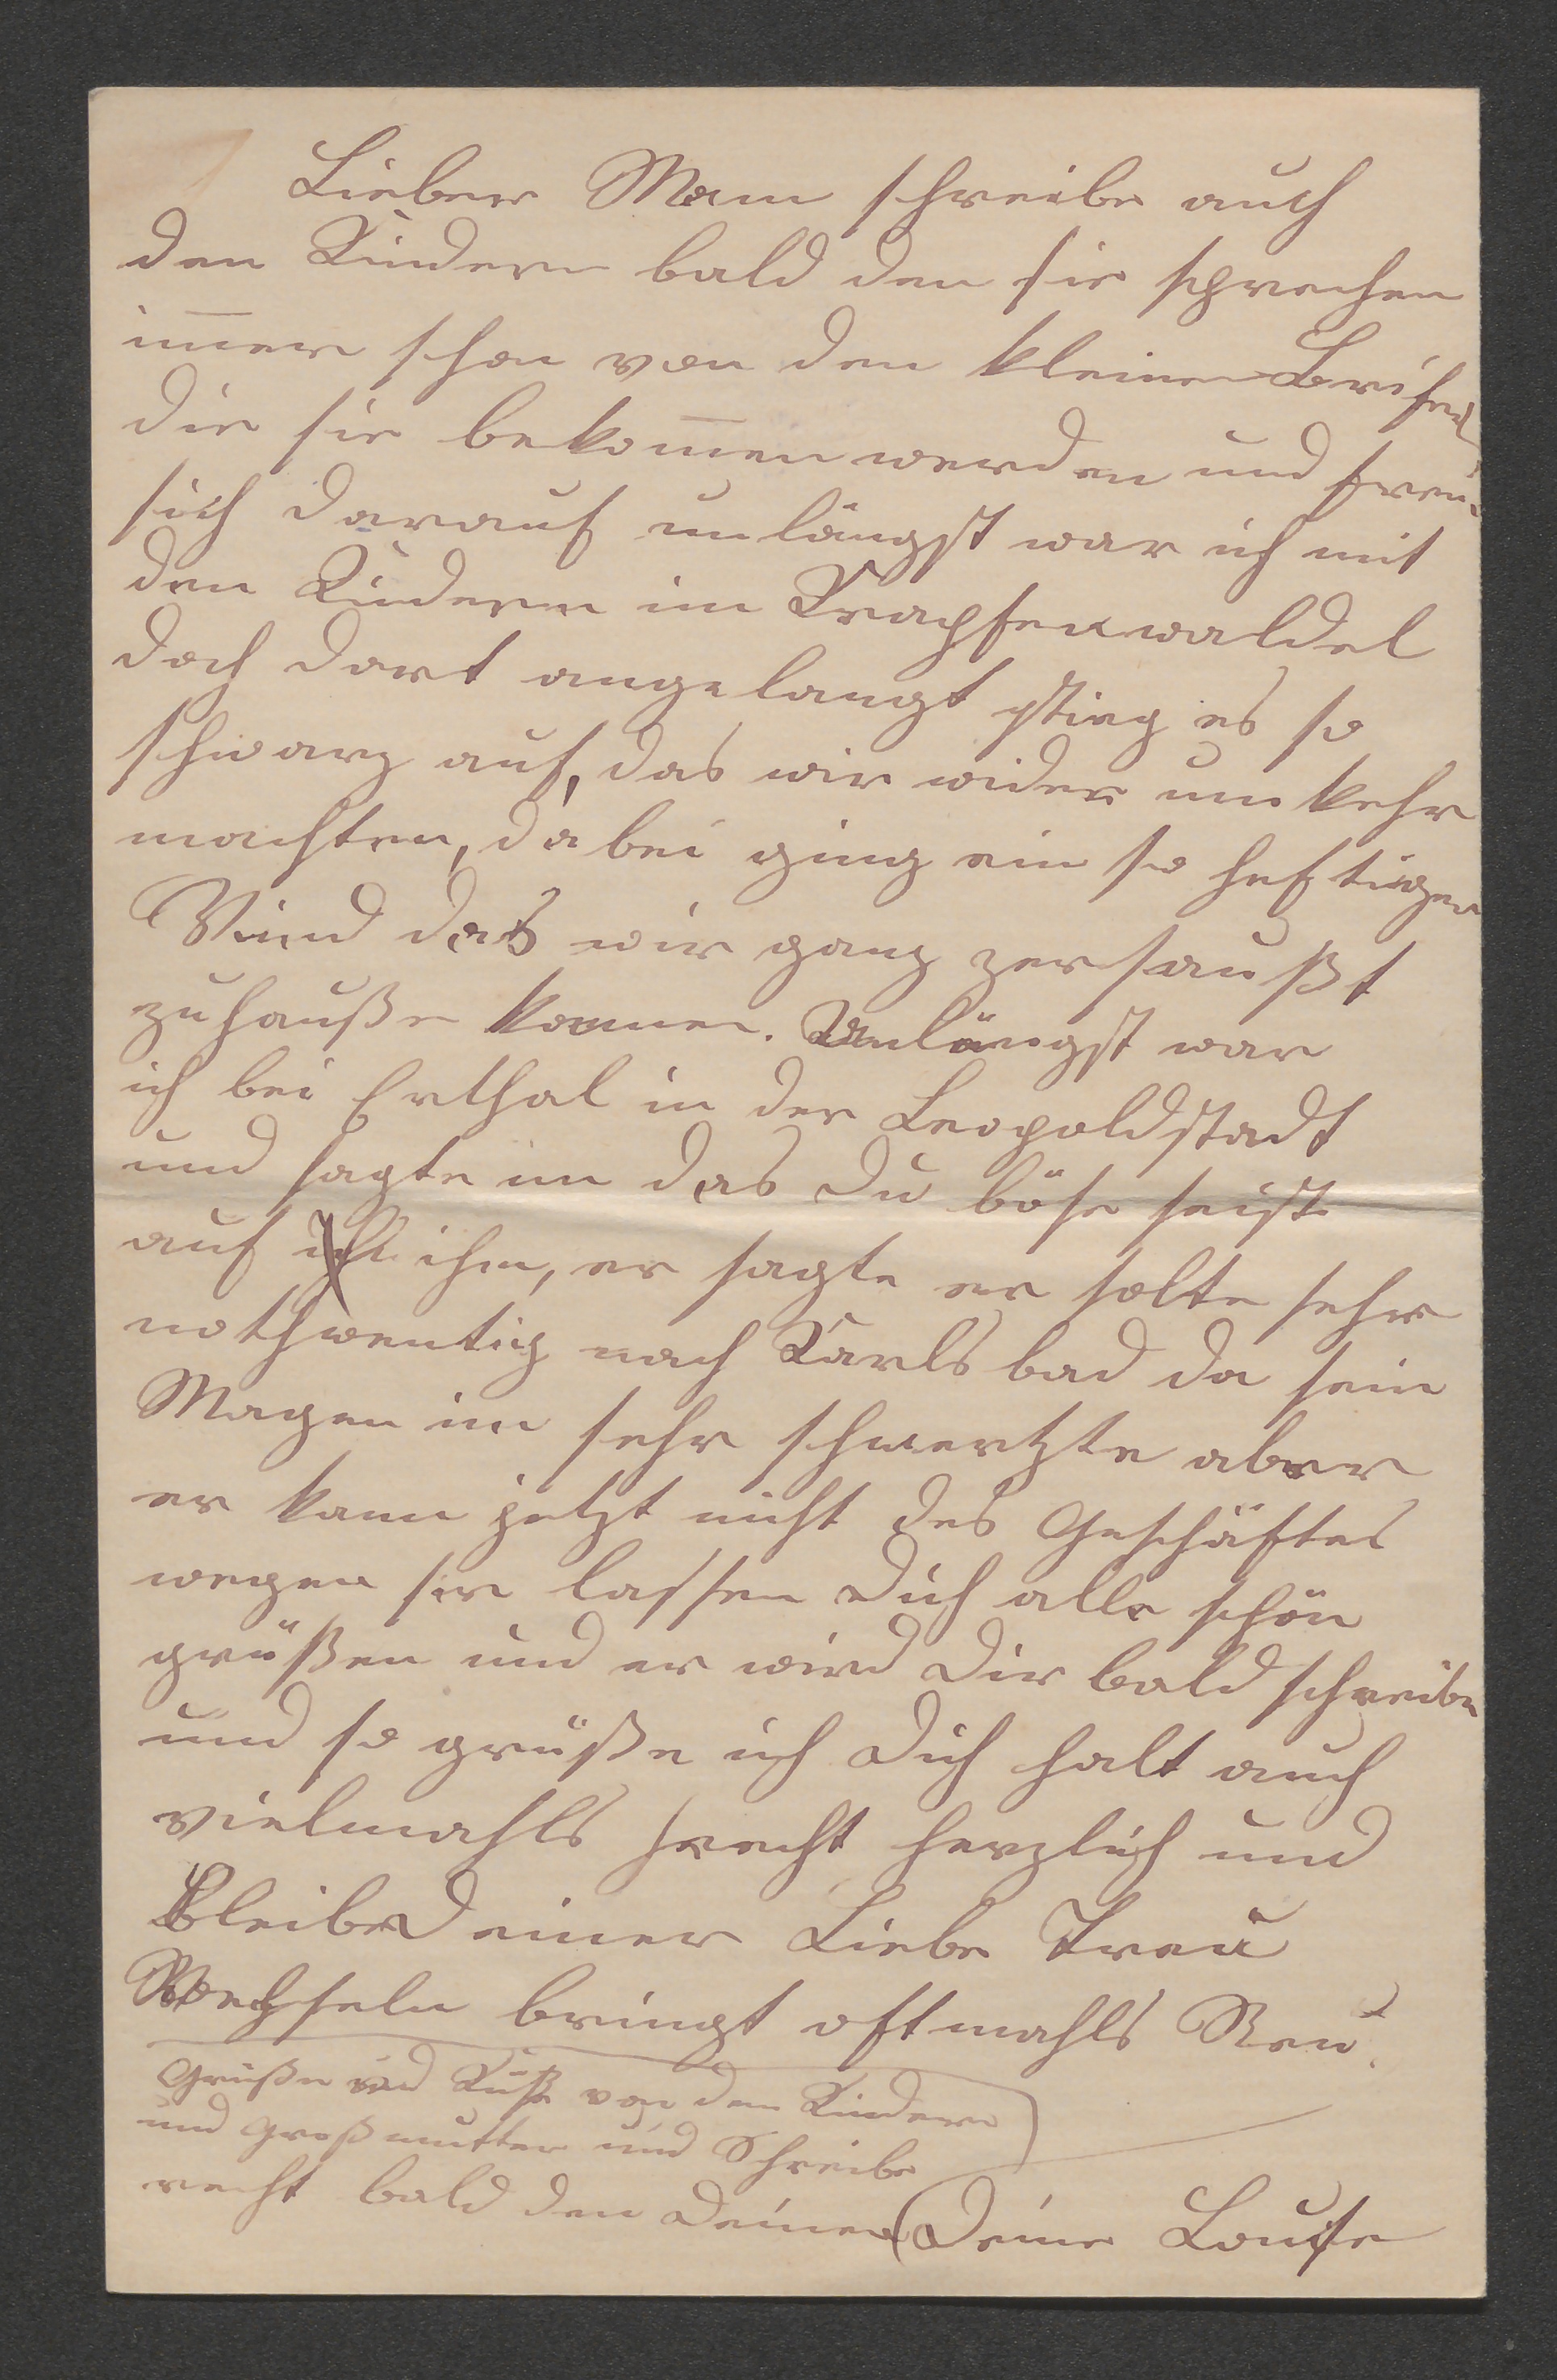 Lieber Mann schreibe auch
den Kindern bald den sie sprechen
im̅er schon von den kleinen Brifen
die sie bekom̅en werden und freun
sich darauf unlängst war ich mit
den Kindern im Krapfenwaldel
doch dort angelangt stieg es so
schwarz auf, das wir wider um kehr
machten, dabei ging ein so heftiger
Wind das wir ganz zersaußt
zuhauße kamen. Unlängst war
ich bei Erthal in der Leopoldstadt
und sagte im das du böse seist
auf ihm, er sagte er solte sehr
nothwentig nach Karlsbad da sein
Magen im sehr schmertzte aber
er kann jetzt nicht des Geschäftes
wegen sie lassen dich alle schön
grüßen und er wird dir bald schreibn
und so grüße ich dich halt auch
vielmahls recht herzlich und
Bleibe deiner Liebe Treu
Wechseln bringt oftmahls Reu.
Grüße und Küße von den Kindern
und Großmutter und Schreibe
recht bald den deinen
Deine Louise